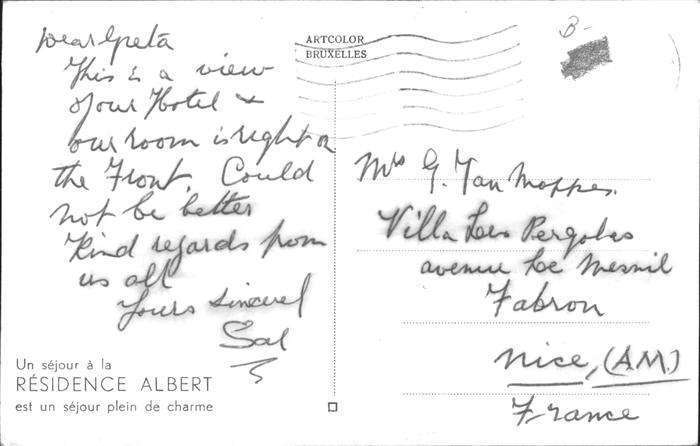 Dear Greta
This is a view
of our Hotel &
our room is right on
the Front. Could
not be better
Kind regards from
us all
Yours sincerel
Sal
Un séjour à la
RÉSIDENCE ALBERT
est un séjour plein de charme
ARTCOLOR
BRUXELLES
B-
Mrs G. Van Moppes.
Villa Les Pergolas
avenue Le Mesnil
Fabron
Nice, (A.M.)
France